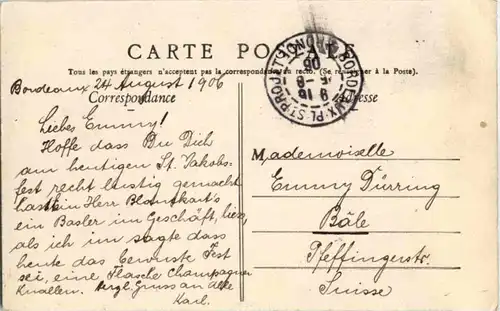 CARTE POSTALE
Tous les pays étrangers n'acceptent pas la correspondance au recto. (Se renseigner à la Poste).
Bordeaux 24 August 1906
Correspondance
Adresse
Liebes Emmy!
Hoffe dass Du Dich
am heutigen St. Jakobs-
fest recht lustig gemacht
hast. Ein Herr Blankart's
ein Basler im Geschäft, liess,
als ich im sagte dass
heute das bewusste Fest
sei, eine Flasche Champagner
Knallen. Hrgl. Gruss an Alle
Karl.
Mademoiselle
Emmy Dürring
Bâle
Pfeffingerstr.
Suisse
BORDEAUX-PL. ST PROJET
GIRONDE